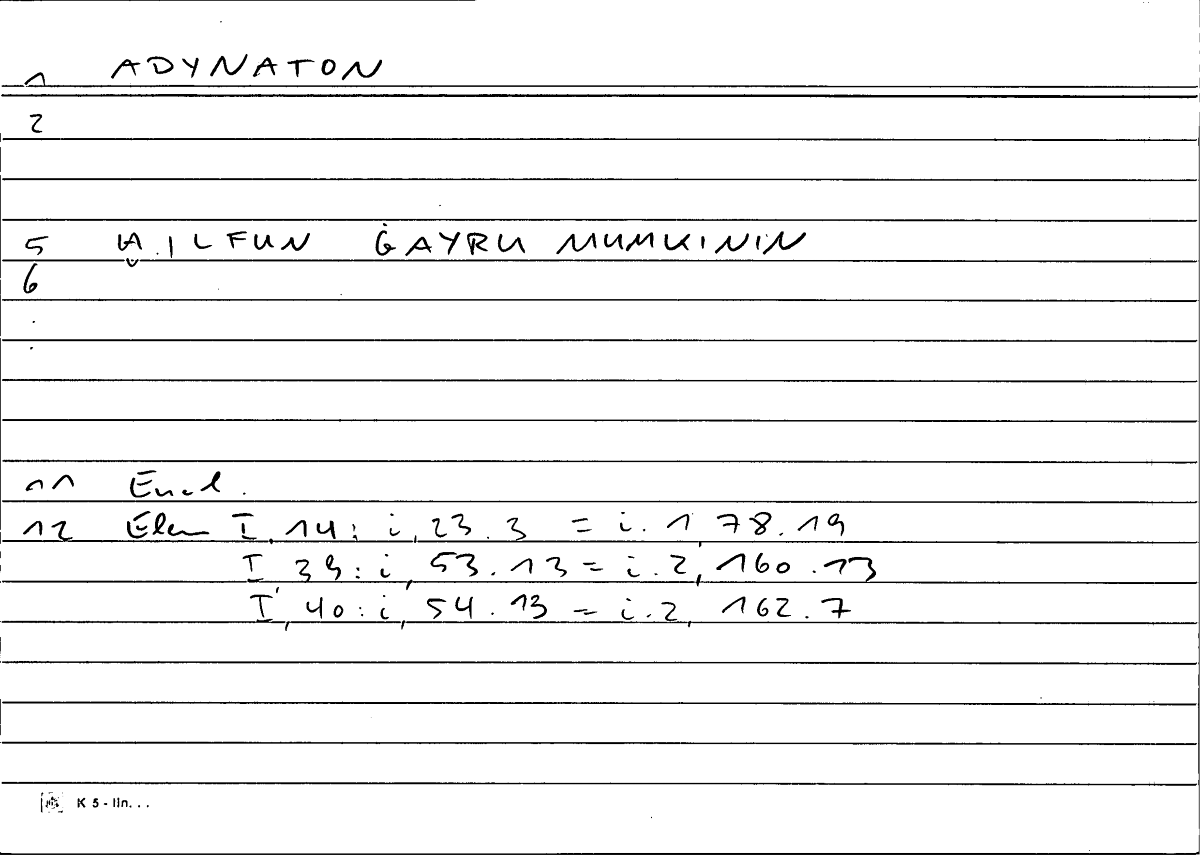 1 ADYNATON
2
5 ḪILFUN ĠAYRU MUMKININ
6
.
.
11 Eucl.
12 Elem I, 14: i, 23.3 = i.1 78.19
I, 39: i, 53.13 = i.2, 160.13
I, 40: i, 54.13 = i.2, 162.7
K 5 - lin. . .